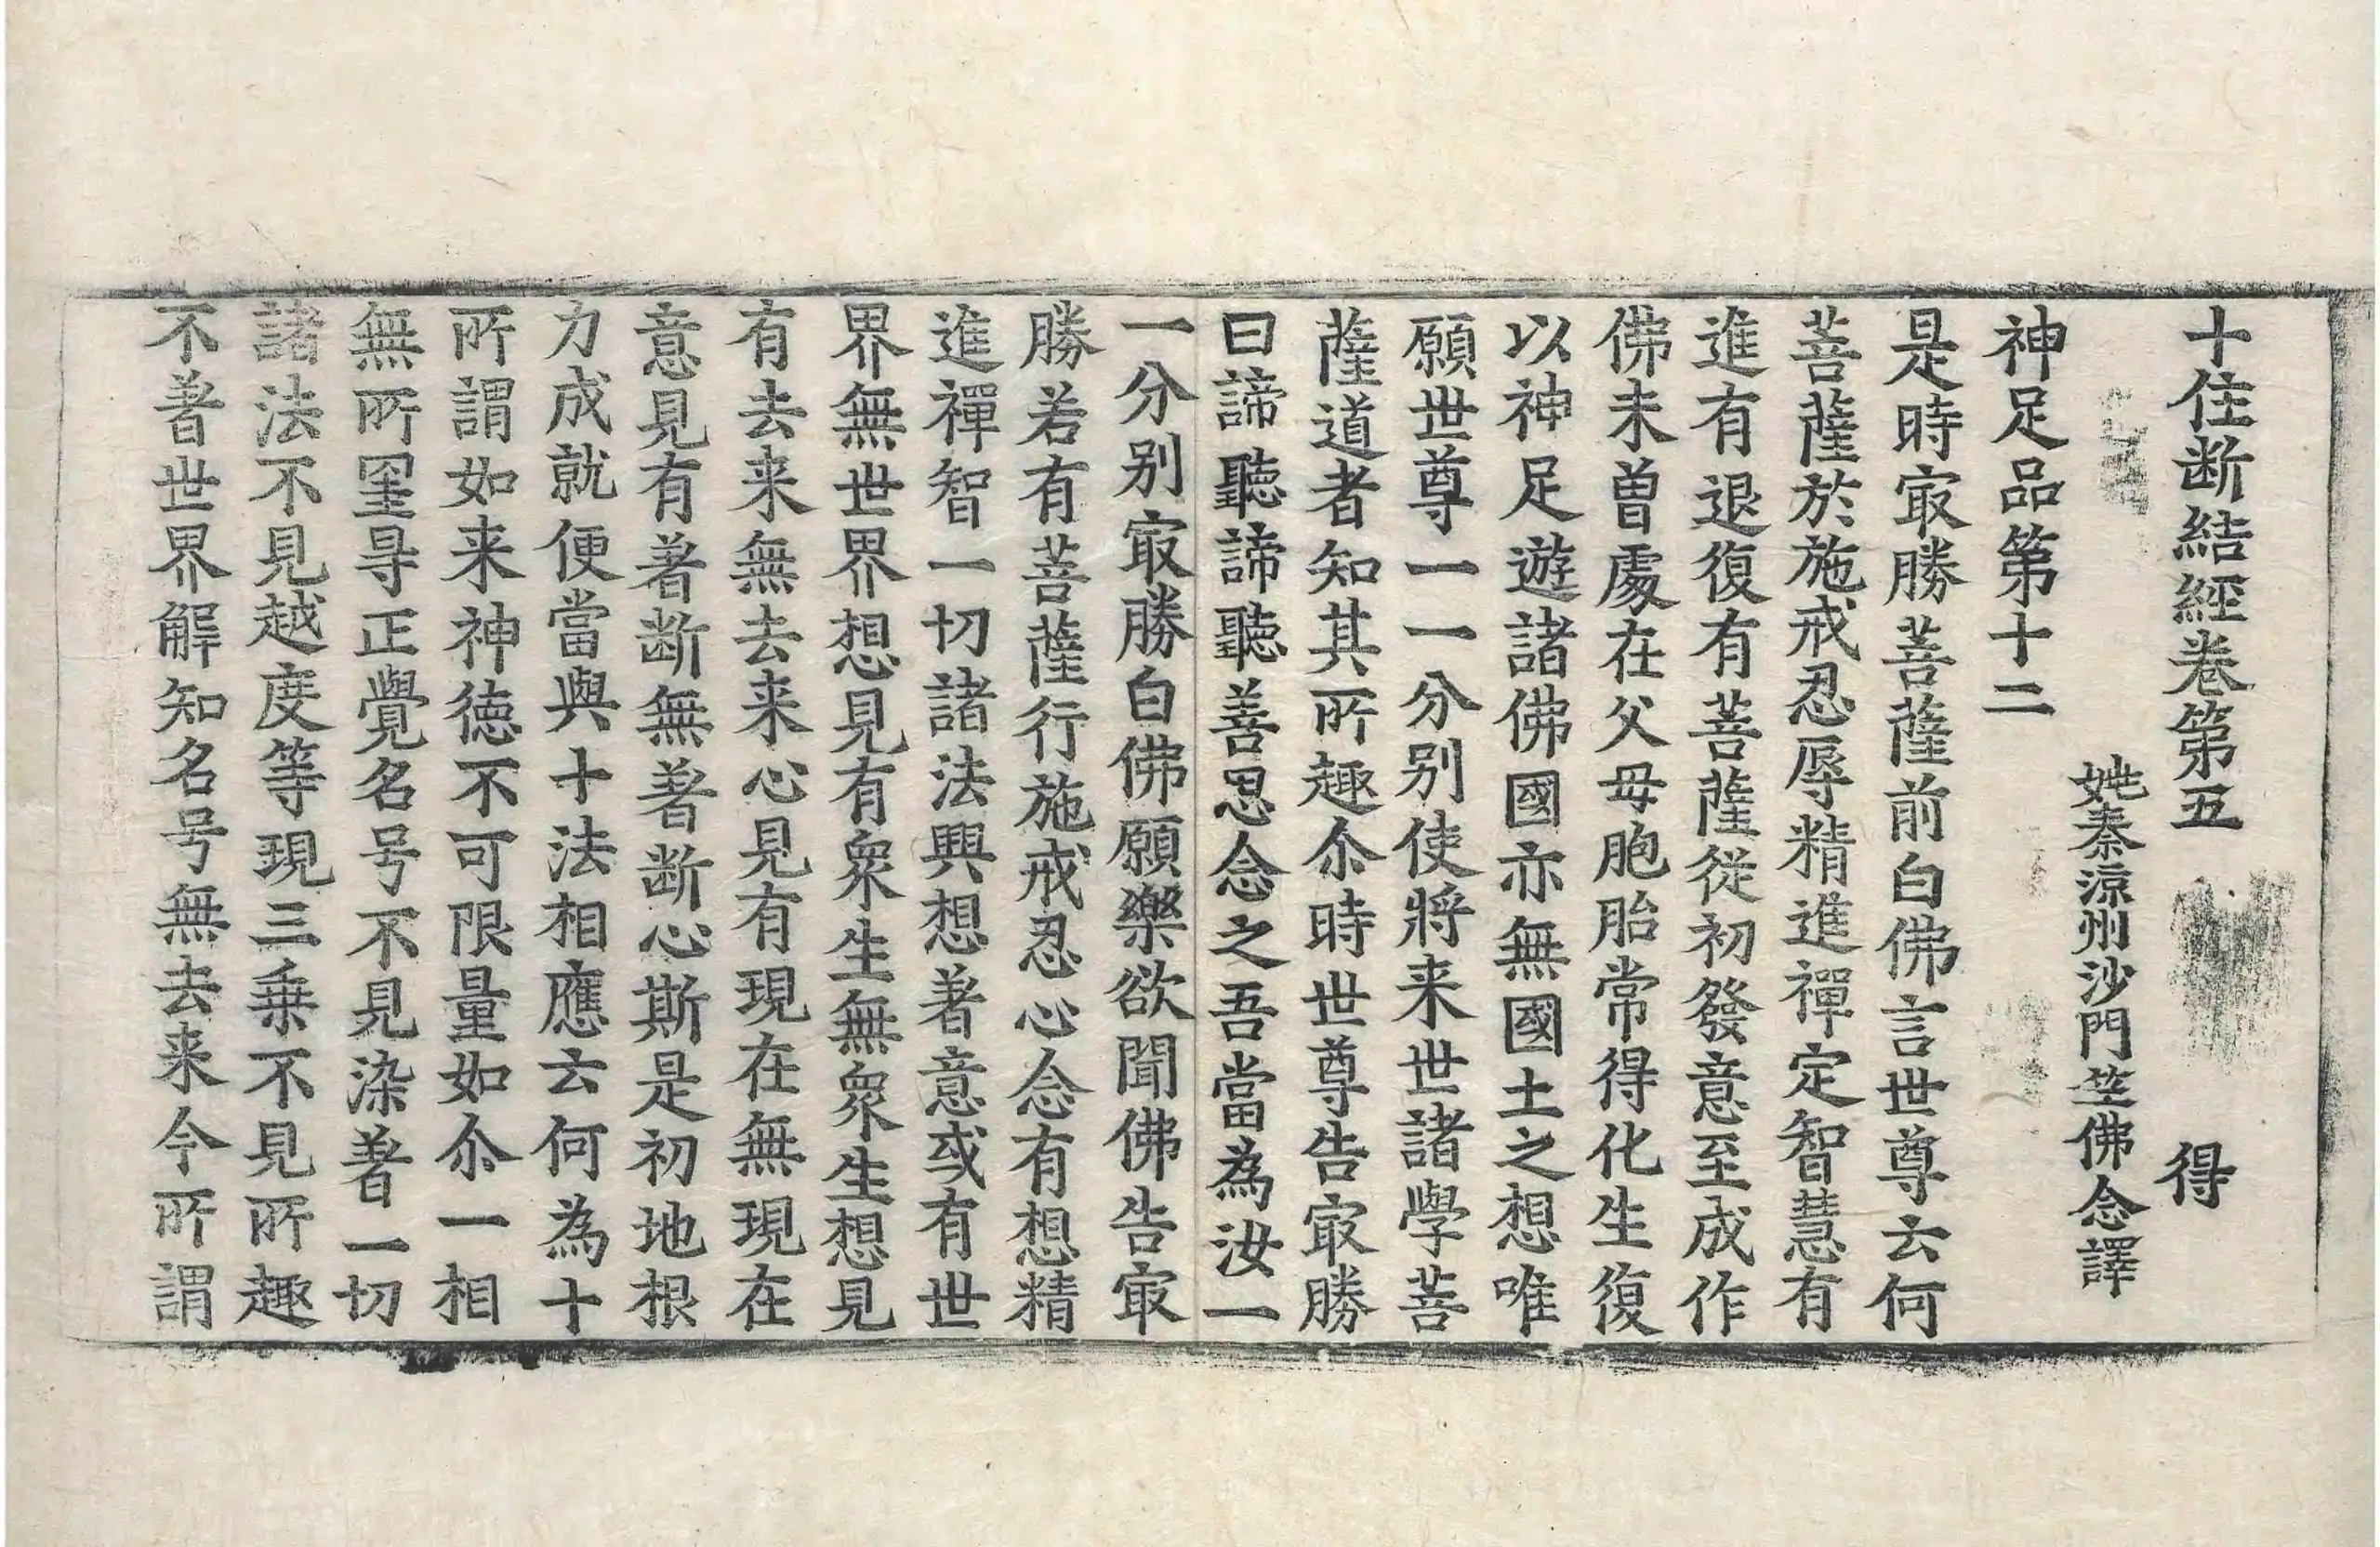 十住断結經卷第五　得
姚秦涼州沙門竺佛念譯
神足品第十二
是時㝡勝菩薩前白佛言世尊云何
菩薩於施戒忍辱精進禪定智慧有
進有退復有菩薩從初發意至成作
佛未曽處在父母胞胎常得化生復
以神足遊諸佛國亦無國土之想唯
願世尊一一分别使將来世諸學菩
薩道者知其所趣尒時世尊告㝡勝
曰諦聽諦聽善思念之吾當為汝一
一分别㝡勝白佛願樂欲聞佛告㝡
勝若有菩薩行施戒忍心念有想精
進禪智一切諸法興想著意或有世
界無世界想見有衆生無衆生想見
有去来無去来心見有現在無現在
意見有著断無著断心斯是初地根
力成就便當與十法相應云何為十
所謂如来神徳不可限量如尒一相
無所罣㝵正覺名号不見染著一切
諸法不見越度等現三乗不見所趣
不著世界解知名号無去来今所謂